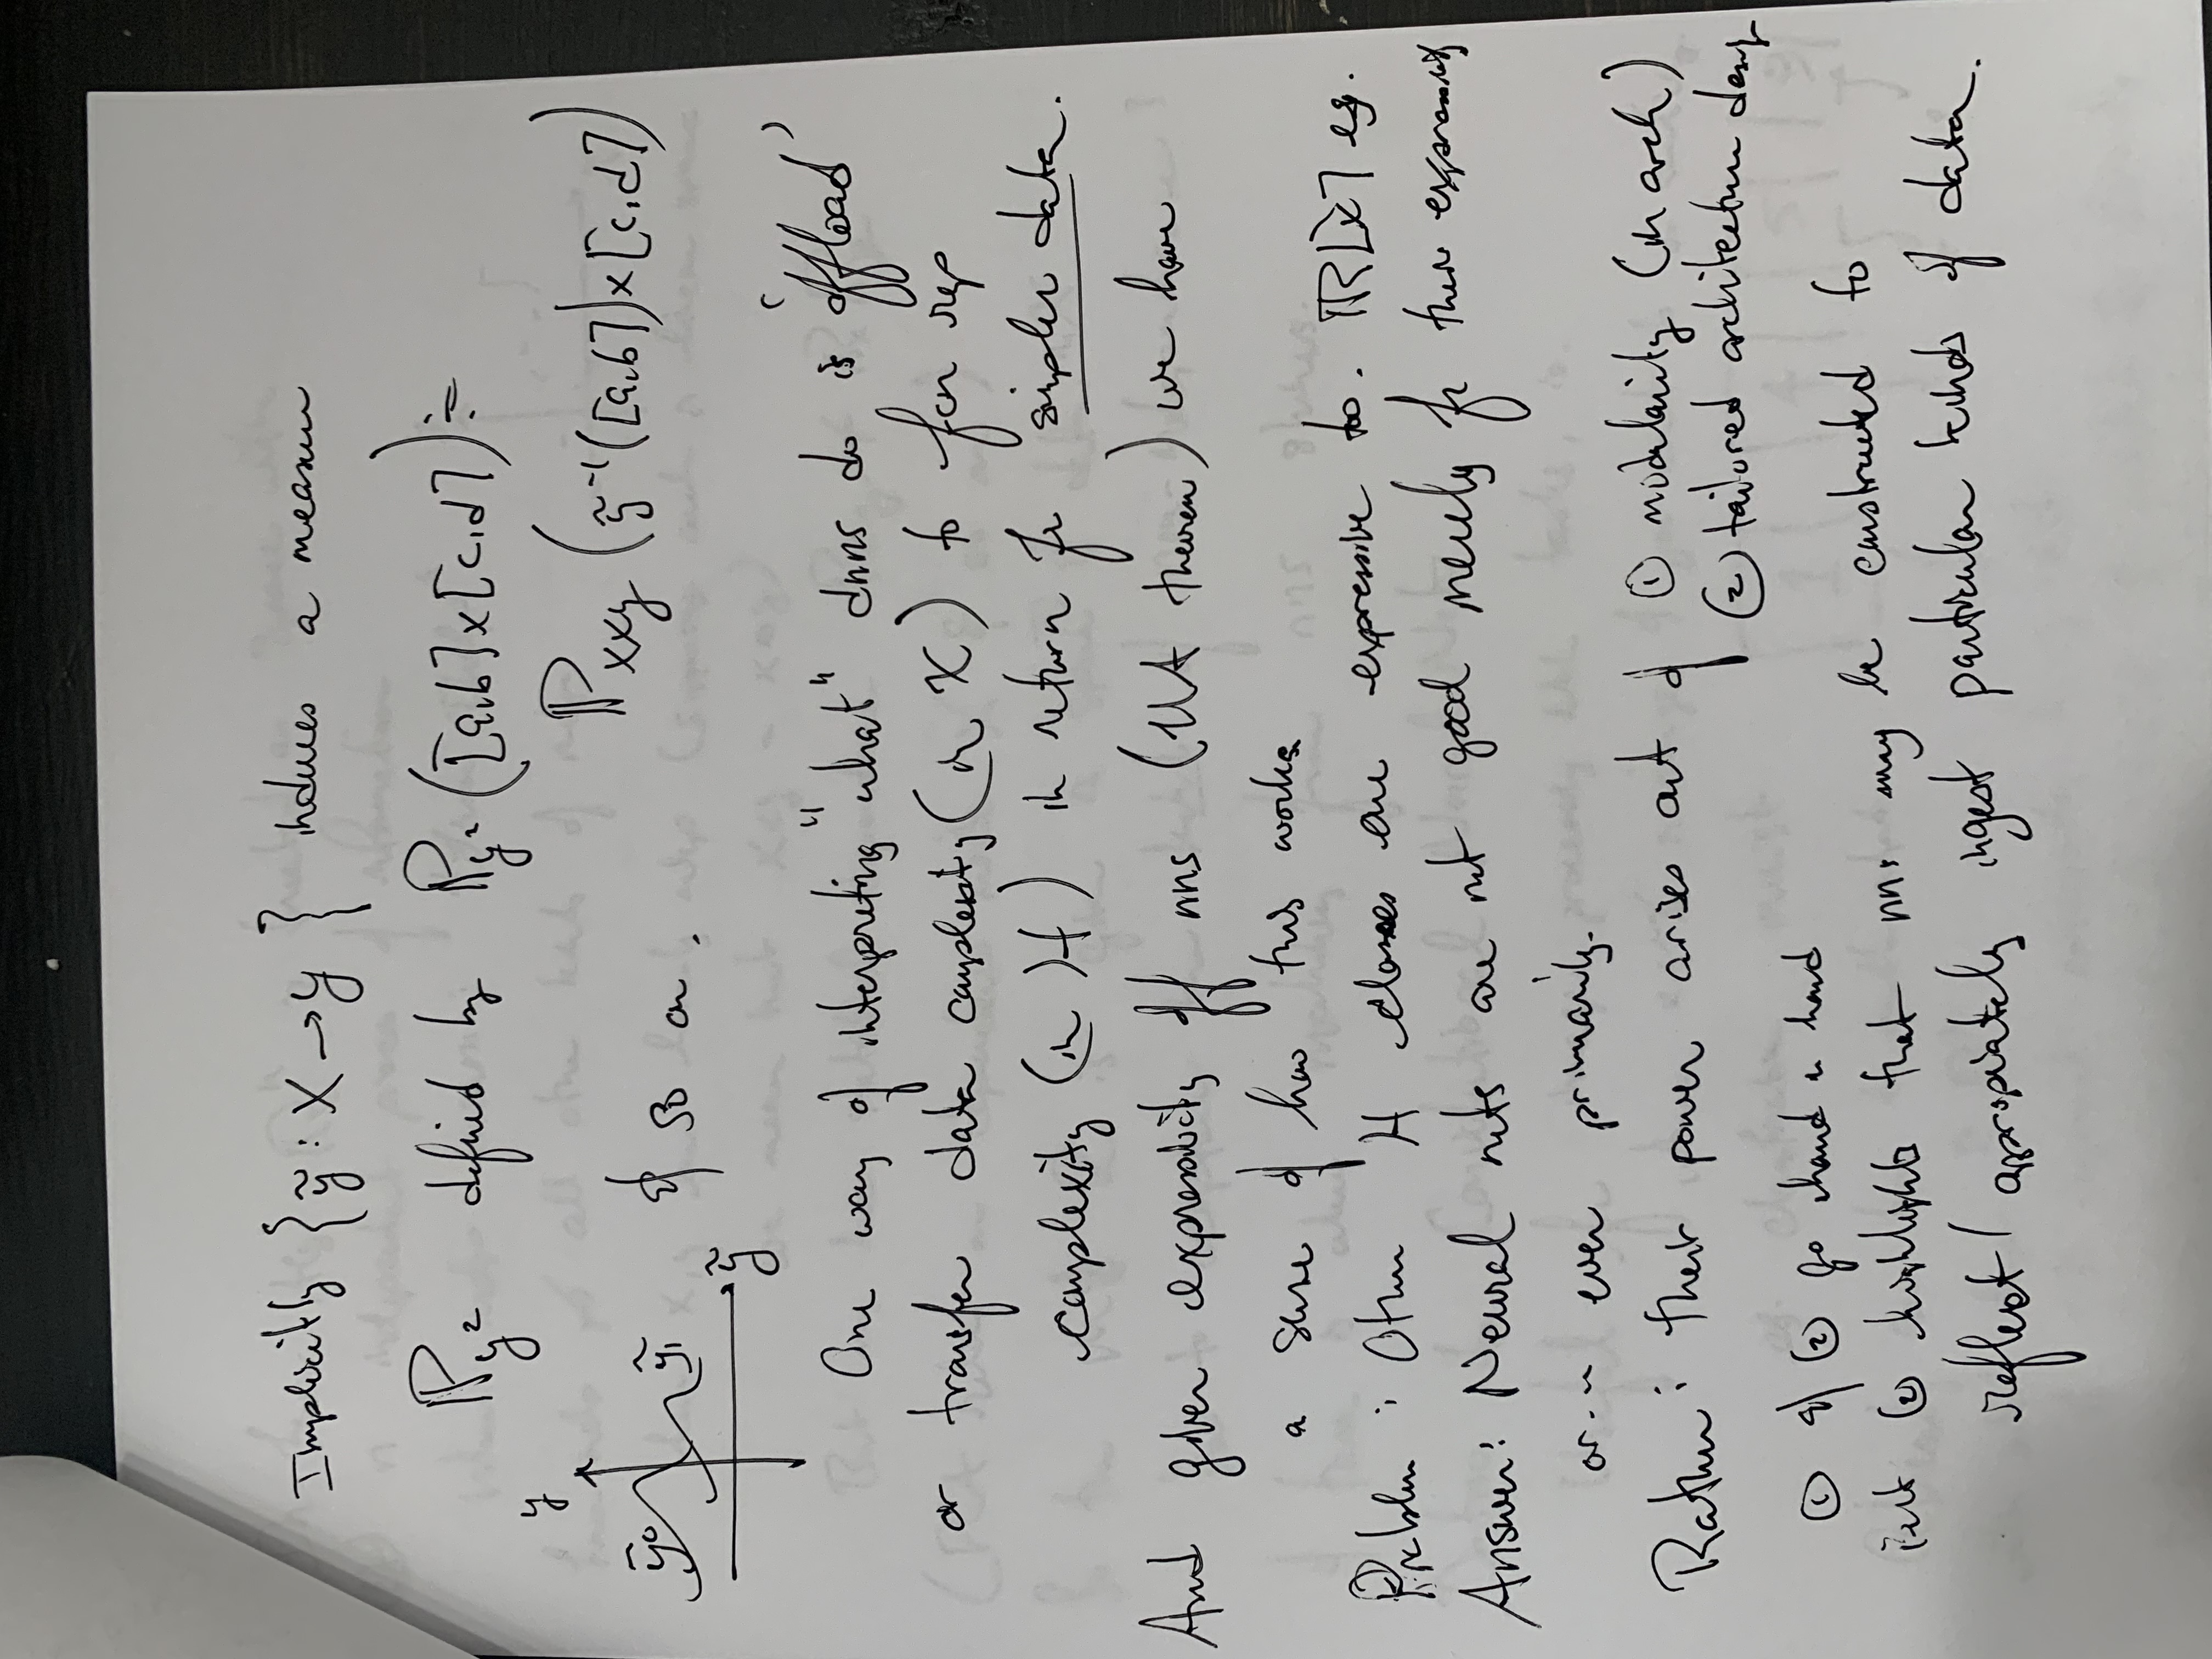 Implicitly { ỹ : X → y } induces a measure
ℙy² defined by ℙy² ([a,b]×[c,d]) ≐
ℙX×y (ỹ⁻¹([a,b])×[c,d])
y
ỹ₀ ỹ₁ & so on.
ỹ
One way of interpreting "what" dnns do is 'offload'
or transfer data complexity (in X) to fcn rep
complexity (in H) in return for simpler data.
And given expressibility of nns (UA theorem) we have
a sense of how this works
Problem : Other H classes are expressive to. ℝ[x] eg.
Answer: Neural nets are not good merely for their expressivity
or... even primarily.
Rather : their power arises out of ① modularity (in arch)
② tailored architecture desg
① & ② go hand in hand
but ② highlights that nns may be constructed to
reflect / appropriately ingest particular kinds of data.